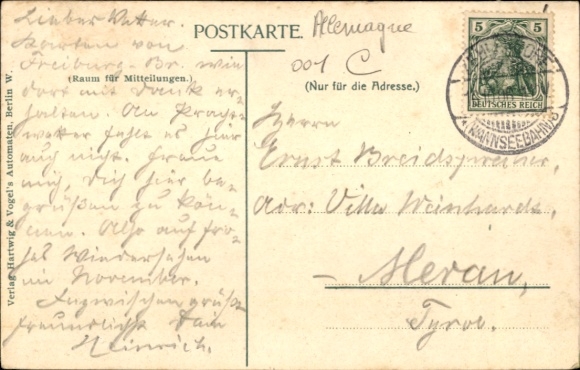 Lieber Vetter.
Karten von
Freiburg-Br. wie
(Raum für Mitteilungen.)
dort mit Dank er-
halten. An Pracht-
wetter fehlt es hier
auch nicht. Freue
mich, Dich hier be-
grüßen zu kön-
nen. Also auf fro-
hes Wiedersehen
im November.
Inzwischen grüßt
freundlichst Dein
Heinrich.
Verlag Hartwig & Vogel's Automaten, Berlin W.
POSTKARTE.
Allemagne
001 C
(Nur für die Adresse.)
5 5
DEUTSCHES REICH
(WANNSEEBAHN)
Herrn
Ernst
Adr: Villa
Meran,
Tyrol.